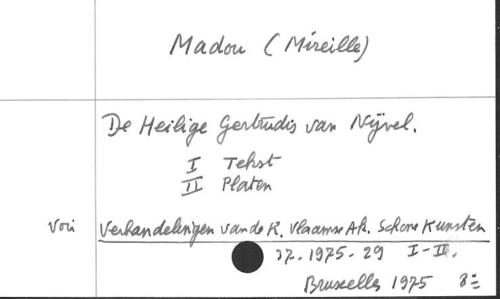 Madou (Mireille)
De Heilige Gertrudis van Nijvel.
I Tekst
II Platen
Voir Verhandelingen van de K. Vlaamse Ak. Schone Kunsten
37. 1975. 29 I-II.
Bruxelles 1975 8=